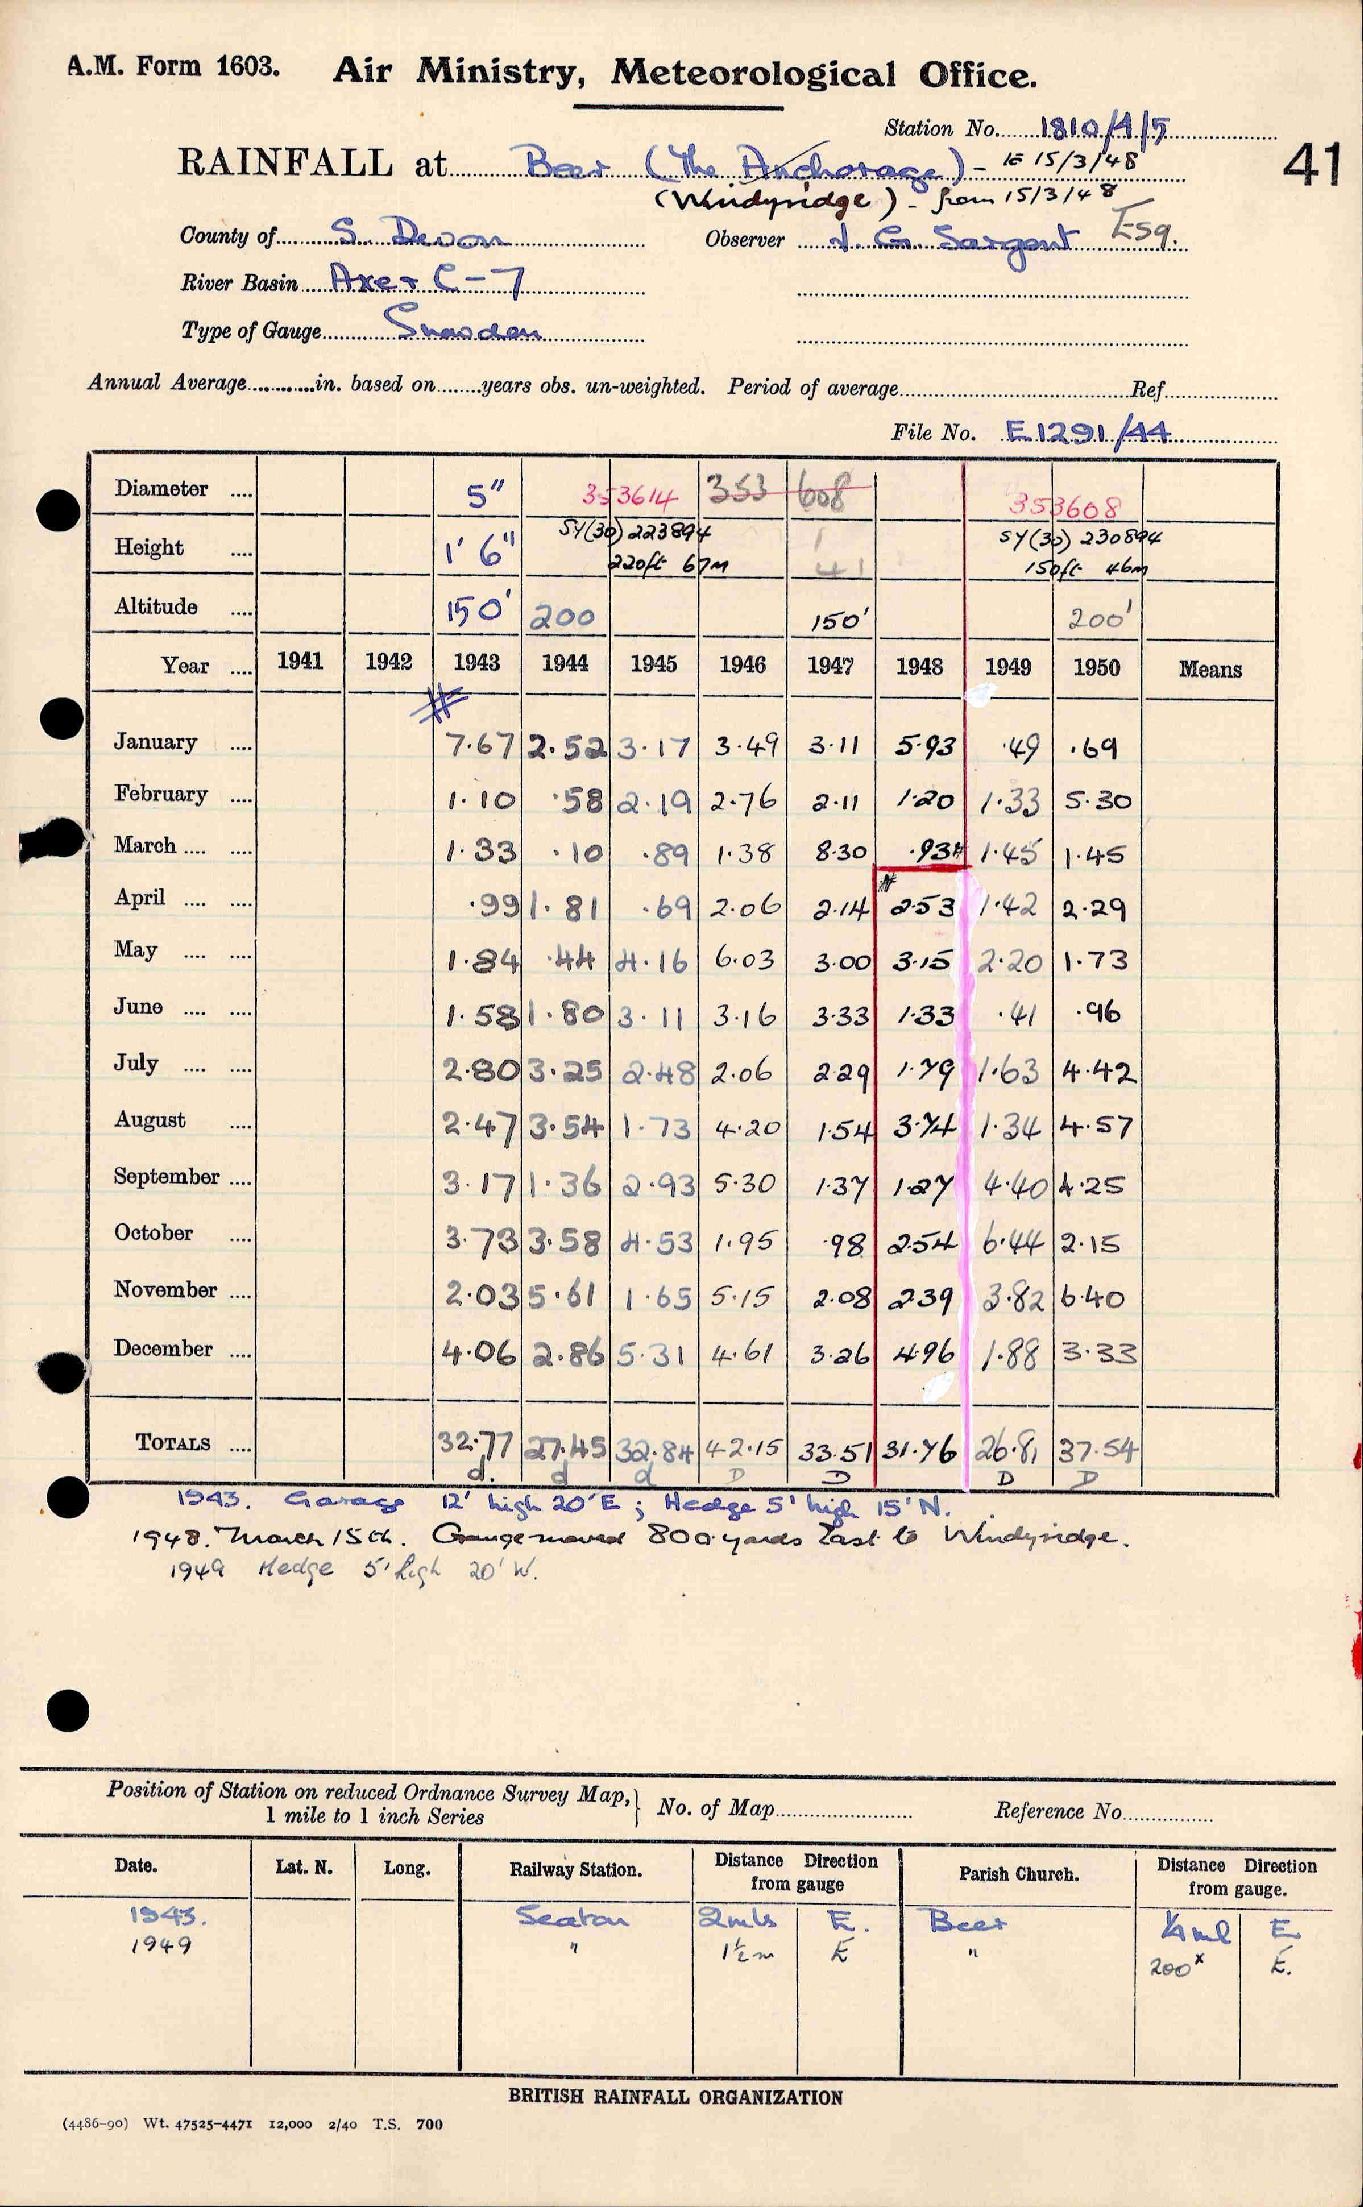 A.M. Form 1603. Air Ministry, Meteorological Office.
Station No. 1810/4/5
41
RAINFALL at Beer (The Anchorage) - to 15/3/48
(Windyridge) - from 15/3/48
County of S. Devon Observer J. G. Sargent Esq.
River Basin Axe + C-7
Type of Gauge Snowdon
Annual Average in. based on years obs. un-weighted. Period of average Ref.
File No. E 1291/44
Diameter 5" 353614 353 608 353608
Height 1' 6" SY(30) 223894 220ft 67m 1 41 SY(30) 230894 150ft 46m
Altitude 150' 200 150' 200'
Year 1941 1942 1943 1944 1945 1946 1947 1948 1949 1950 Means
January 7.67 2.52 3.17 3.49 3.11 5.93 .49 .69
February 1.10 .58 2.19 2.76 2.11 1.20 1.33 5.30
March 1.33 .10 .89 1.38 8.30 .93# 1.45 1.45
April .99 1.81 .69 2.06 2.14 2.53 1.42 2.29
May 1.84 .44 4.16 6.03 3.00 3.15 2.20 1.73
June 1.58 1.80 3.11 3.16 3.33 1.33 .41 .96
July 2.80 3.25 2.48 2.06 2.29 1.79 1.63 4.42
August 2.47 3.54 1.73 4.20 1.54 3.74 1.34 4.57
September 3.17 1.36 2.93 5.30 1.37 1.27 4.40 4.25
October 3.73 3.58 4.53 1.95 .98 2.54 6.44 2.15
November 2.03 5.61 1.65 5.15 2.08 2.39 3.82 6.40
December 4.06 2.86 5.31 4.61 3.26 4.96 1.88 3.33
TOTALS 32.77 27.45 32.84 42.15 33.51 31.76 26.81 37.54
d. d d D D D D
1943. Garage 12' high 20' E ; Hedge 5' high 15' N.
1948. March 15th. Gauge moved 800 yards East to Windyridge.
1949 Hedge 5' high 20' W.
Position of Station on reduced Ordnance Survey Map, 1 mile to 1 inch Series } No. of Map Reference No.
Date. Lat. N. Long. Railway Station. Distance Direction from gauge Parish Church. Distance Direction from gauge.
1943. Seaton 2 mls E. Beer ¼ ml E
1949 " 1½ m E " 200x E.
BRITISH RAINFALL ORGANIZATION
(4486-90) Wt. 47525-4471 12,000 2/40 T.S. 700